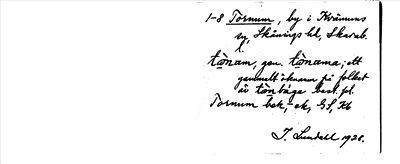 1-8 Tornum, by i Kvänums
sn, Skånings hd, Skarab.
l.
tònam, gen. tònama; ett
gammalt öknamn på folket
är tònbåga best. pl.
Tornum bek, -ek, GS, Kb
J. Lundell 1920.